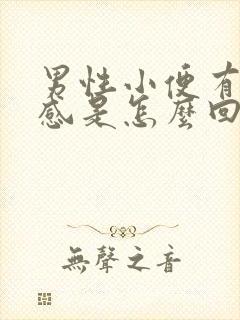 男性小便有
感是怎麼回
無聲之音